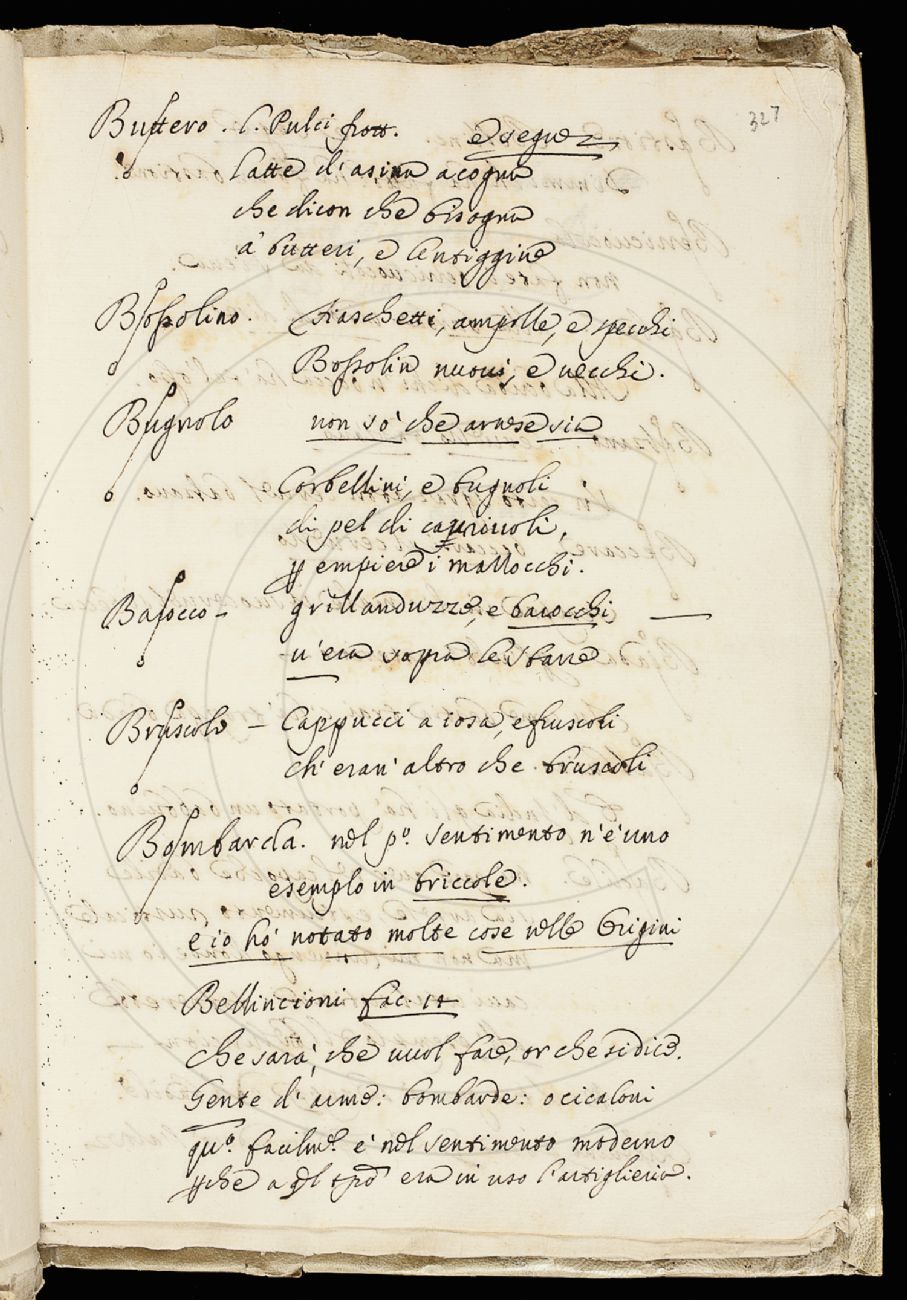 327
Buttero . L. Pulci frott. e segue
Latte d'asina acogna
che dicon che bisogna
a' butteri, e lentiggine
Bossolino. Fiaschetti, ampolle, e specchi
Bossolin nuovi, e vecchi.
Bugnolo non so' che arnese sia
Corbellini, e bugnoli
di pel di cavrivoli,
p empiere i mallocchi.
Baiocco - grillanduzze, e baiocchi
n'era sopra le sbarre
Bruscolo - Cappucci a iosa, e fruscoli
ch'eran' altro che bruscoli
Bombarda. nel p.º sentimento n'e' uno
esemplo in briccole.
e io ho' notato molte cose nelle Origini
Bellincioni fac. 14
che sara', che vuol fare, or che si dice.
Gente d'arme: bombarde: o cicaloni
qu.º facilm.e e' nel sentimento moderno
pche a ql tpo era in uso l'artiglieria.